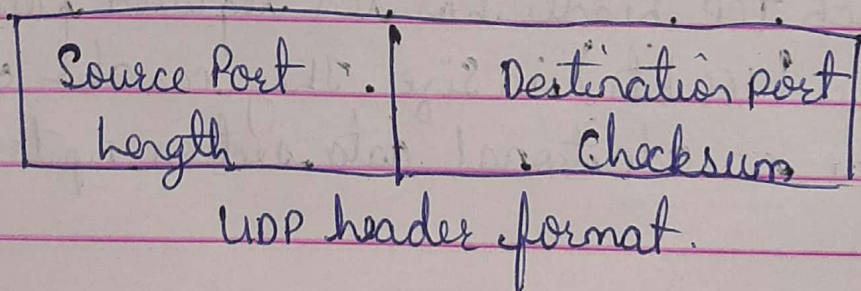 Source Port Destination port
Length Checksum
UDP header format.